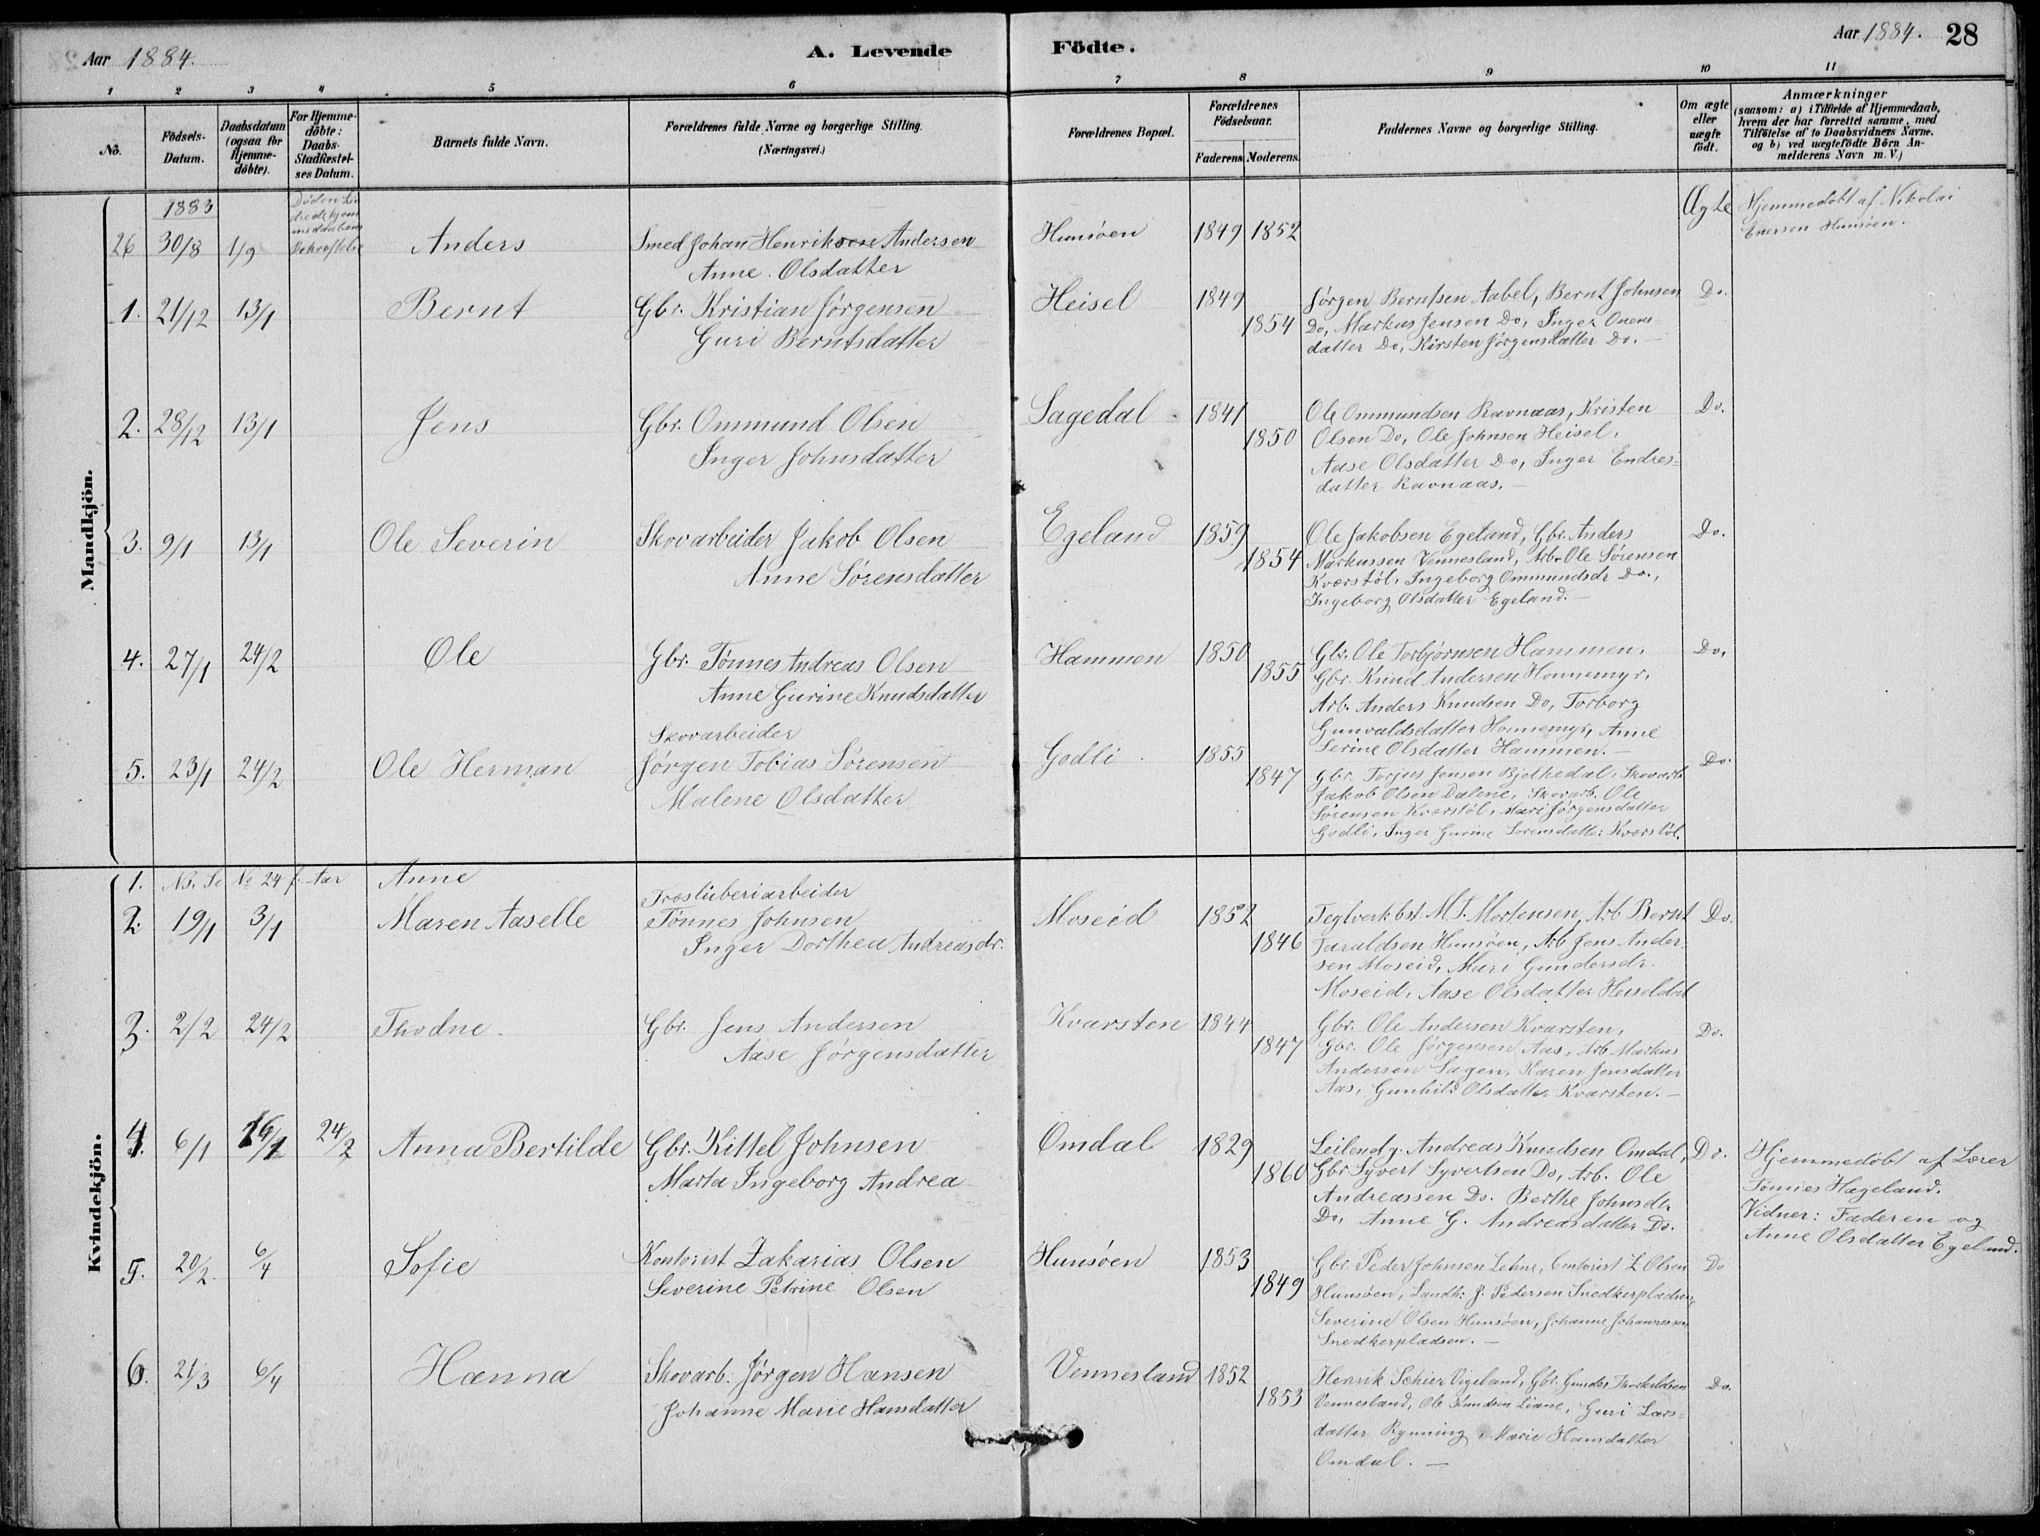 Aar 1884.
A. Levende Födte.
Aar 1884. 28
1 2 3 4 5 6 7 8 9 10 11
No.
Födsels-Datum.
Daabsdatum (ogsaa för Hjemme-döbte).
For Hjemme-döbte: Daabs-Stadfæstel-ses Datum.
Barnets fulde Navn.
Forældrenes fulde Navne og borgerlige Stilling. (Næringsvei.)
Forældrenes Bopæl.
Forældrenes Födselsaar.
Faderens. Moderens.
Faddernes Navne og borgerlige Stilling.
Om ægte eller uægte födt.
Anmærkninger
(saasom: a) i Tilfælde af Hjemmedaab,
hvem der har forrettet samme, med
Tilföielse af to Daabsvidners Navne.
og b) ved uægtefödte Börn An-
melderens Navn m. V.)
Mandkjön.
1883
Døden hin
drede hjem
medaabens
26 30/8 1/9 Bekræftelse Anders Smed Johan Henriksen Andersen Hunsøen 1849 1852 Ægte Hjemmedøbt af Nikolai
Anne Olsdatter Hunsøen.
1. 21/12 13/1 Bernt Gbr. Kristian Jørgensen Heisel 1849 Jørgen Berntsen Aabel, Bernt Johnsen Do.
Guri Berntsdatter 1854 Do, Markus Jensen Do, Inger
datter Do, Kirsten Jørgensdatter Do. —
2. 28/12 13/1 Jens Gbr. Ommund Olsen Sagedal 1841 Ole Ommundsen Ravnaas, Kristen Do.
Inger Johnsdatter 1850 Olsen Do, Ole Johnsen Heisel,
Aase Olsdatter Do, Inger Endres-
datter Ravnaas. —
3. 9/1 13/1 Ole Severin Skovarbeider Jakob Olsen Egeland 1859 Ole Jakobsen Egeland, Gbr. Anders Do.
Anne Sørensdatter 1854 Markussen Vennesland, Arb. Ole Sørensen
Kværstøl, Ingeborg Ommundsdr Do.,
Ingeborg Olsdatter Egeland. —
4. 27/1 24/2 Ole Gbr. Tønnes Andreas Olsen Hammen 1850 Gbr. Ole Torbjørnsen Hammen, Do,
Anne Gurine Knudsdatter 1855 Gbr. Knud Andersen Honnemyr,
Arb. Anders Knudsen Do, Torborg
Gunvaldsdatter Honnemyr, Anne
Serine Olsdatter Hammen. —
Skovarbeider
5. 23/1 24/2 Ole Herman Jørgen Tobias Sørensen Godli 1855 Do.
Malene Olsdatter 1847 Gbr. Torjus Jensen Skovarb
Jakob Olsen Dalene, Skovarb. Ole
Sørensen Kværstøl, Mari Jørgensdatter
Godli, Inger Gurine Sørensdatter Kværstøl.
Kvindekjön.
1. NB. Se No 24 f. Aar Anne
Træsliberiarbeider
2. 19/1 3/1 Maren Aaselle Tønnes Johnsen Moseid 1852 Teglverkbst. M. T. Mortensen, Arb Bernt Do.
Inger Dorthea Andreasdr. 1846 Taraldsen Hunsøen, Arb Jens Ander-
sen Moseid, Mari Gundersdr.
Moseid, Aase Olsdatter
3. 2/2 24/2 Thodne. Gbr. Jens Andersen Kvarsten 1844 Gbr. Ole Andersen Kvarsten, Do.
Aase Jørgensdatter 1847 Gbr. Ole Jørgensen Aas, Arb Markus
Andersen Sagen, Karen Jensdatter
Aas, Gunhild Olsdatter Kvarsten. —
4. 6/1 16/1 24/2 Anna Bertilde Gbr. Kittel Johnsen Omdal 1829 Leilend g. Andreas Knudsen Omdal, Do. Hjemmedøbt af Lærer
Marta Ingeborg Andrea 1860 Gbr Syvert Syvertsen Do, Arb. Ole Tønnes Hægeland.
Andreassen Do. Berthe Johnsdtr Vidner: Faderen og
Do, Anne G. Andreasdatter Do. Anne Olsdatter Egeland.
5. 20/2. 6/4 Sofie Kontorist Zakarias Olsen Hunsøen 1853 Gbr. Peder Johnsen Lehne, Contorist Z Olsen Do
Severine Petrine Olsen 1849 Hunsøen, Landh: J. Pedersen Snedkerpladsen,
Severine Olsen Hunsøen, Johanne Johannessen
Snedkerpladsen. —
6. 21/3 6/4 Hanna Skovarb. Jørgen Hansen Vennesland 1852 Henrik Schier Vigeland, Gbr. Gunder Torkildsen Do.
Johanne Marie Hansdatter 1853 Vennesland, Ole Knudsen Liane, Guri Lars-
datter Rynning, Marie Hansdatter
Omdal. —